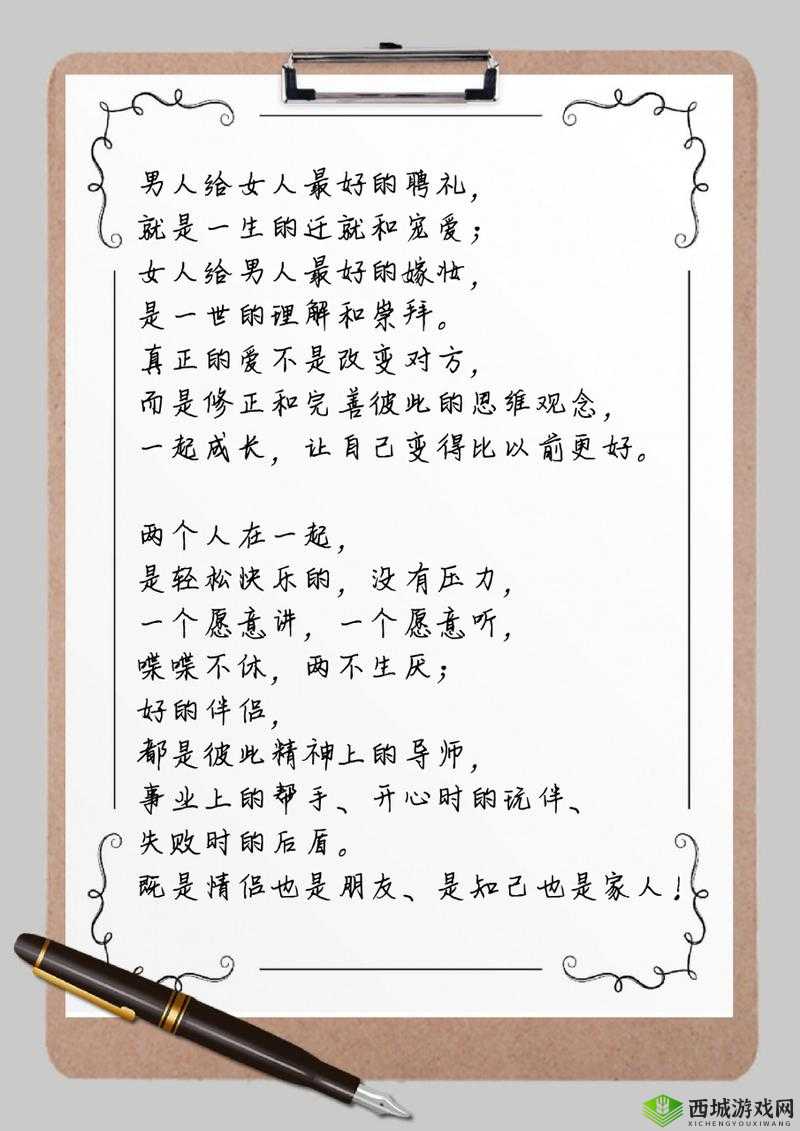 男人给女人最好的聘礼,
就是一生的迁就和宠爱;
女人给男人最好的嫁妆,
是一世的理解和崇拜。
真正的爱不是改变对方,
而是修正和完善彼此的思维观念,
一起成长,让自己变得比以前更好。
两个人在一起,
是轻松快乐的,没有压力,
一个愿意讲,一个愿意听,
喋喋不休,两不生厌;
好的伴侣,
都是彼此精神上的导师,
事业上的帮手、开心时的玩伴、
失败时的后盾。
既是情侣也是朋友、是知己也是家人!
西城游戏网
XICHENGYOUXIWANG